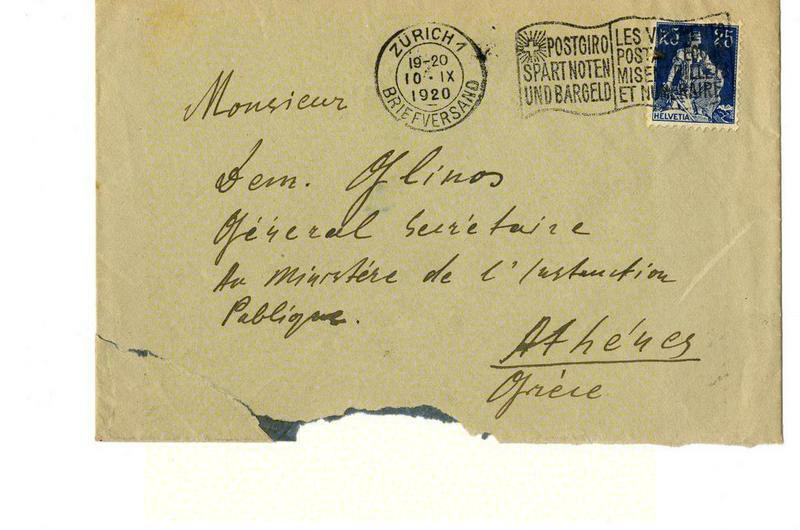 ZÜRICH 1
19-20
10·IX
1920
BRIEFVERSAND
POSTGIRO
SPART NOTEN
UND BARGELD
LES V
POST
MISE
ET NUMÉRAIRE
25 25
HELVETIA
Monsieur
Dem. Glinos
Général Secrétaire
Au Ministére de l'Instruction
Publique.
Athénes
Gréce